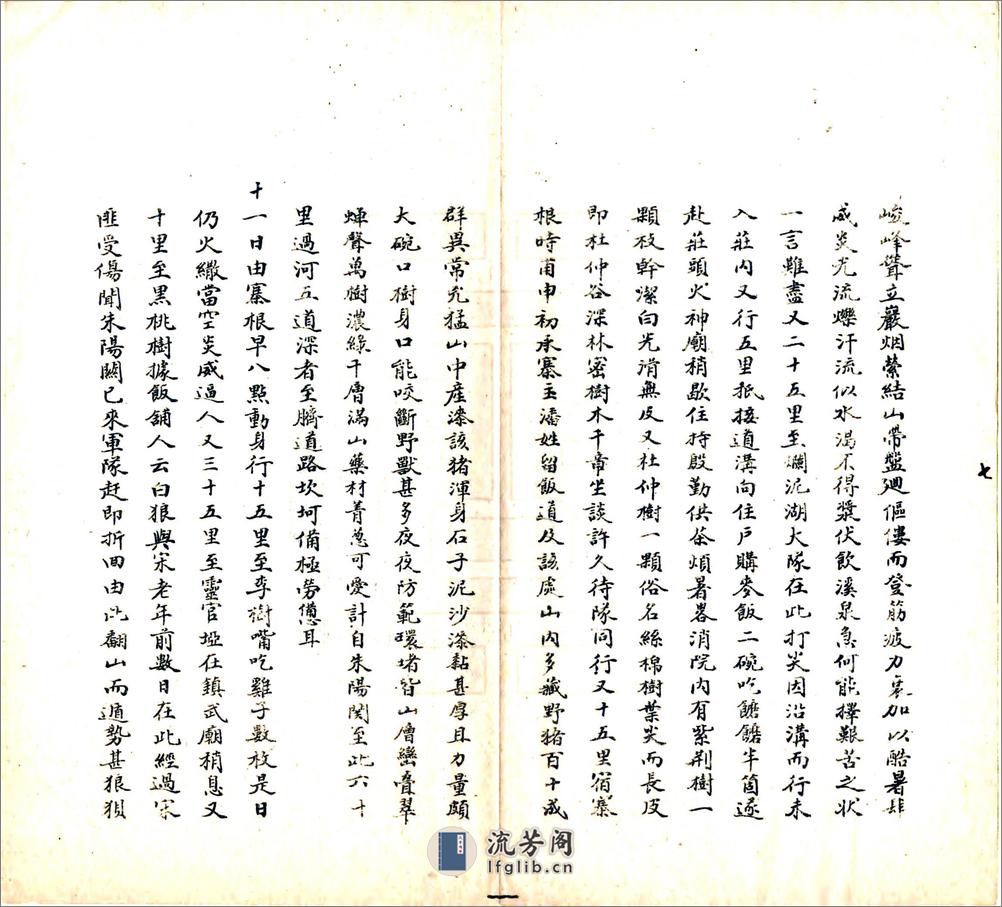 峻峰聳立巖烟縈結山帶盤廻傴僂而登筋疲力衰加以酷暑肆
威炎光流爍汗流似水渴不得漿伏飲溪泉急何能擇艱苦之狀
一言難盡又二十五里至爛泥湖大隊在此打尖因沿溝而行未
入莊內又行五里抵接道溝向住戶購麥飯二碗吃饝饝半箇遂
赴莊頭火神廟稍歇住持殷勤供茶煩暑畧消院內有紫荆樹一
顆枝幹潔白光滑無皮又杜仲樹一顆俗名絲棉樹葉尖而長皮
即杜仲谷深林密樹木千章坐談許久待隊同行又十五里宿寨
根時甫申初承寨主潘姓留飯道及該處山內多藏野猪百十成
七
群異常兇猛山中產漆該猪渾身石子泥沙漆黏甚厚且力量頗
大碗口樹身口能咬斷野獸甚多夜夜防範環堵皆山層巒疊翠
蟬聲萬樹濃綠千層滿山藥材菁葱可愛計自朱陽関至此六十
里過河五道深者至臍道路坎坷備極勞憊耳
十一日由寨根早八點動身行十五里至李樹嘴吃雞子數枚是日
仍火繖當空炎威逼人又三十五里至靈官埡在鎮武廟稍息又
十里至黑桃樹據飯舖人云白狼與宋老年前數日在此經過宋
匪受傷聞朱陽關已來軍隊赶即折回由此翻山而遁勢甚狼狽
流芳阁
lfglib.cn